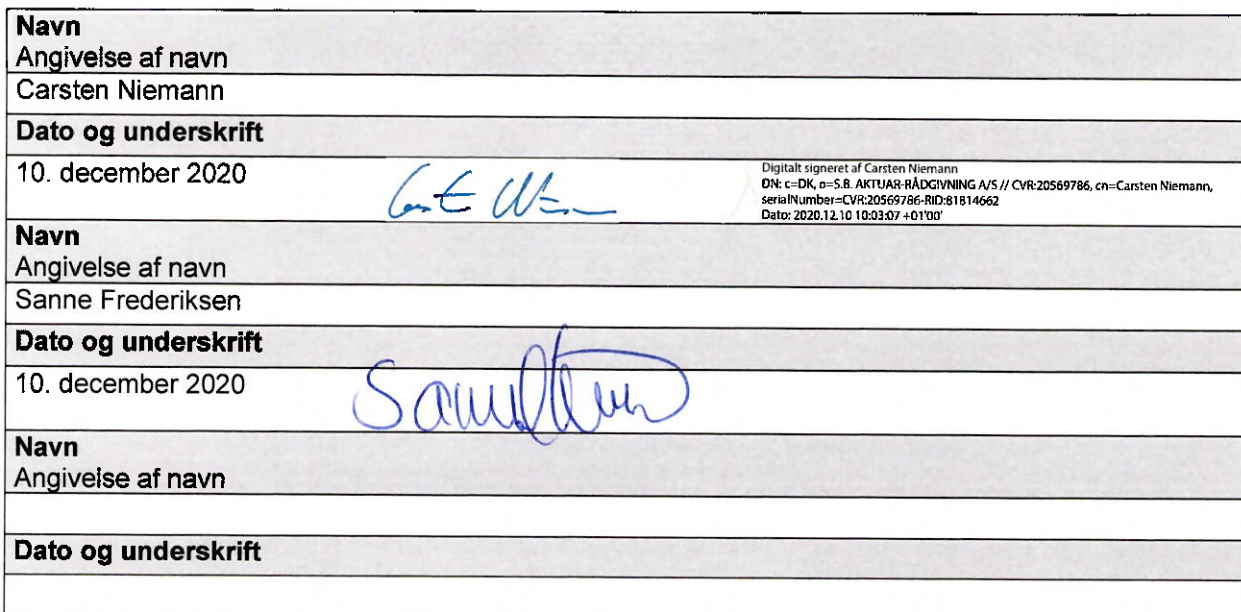 Navn
Angivelse af navn
Carsten Niemann
Dato og underskrift
10. december 2020
Digitalt signeret af Carsten Niemann
DN: c=DK, o=S.B. AKTUAR-RÅDGIVNING A/S // CVR:20569786, cn=Carsten Niemann,
serialNumber=CVR:20569786-RID:81814662
Dato: 2020.12.10 10:03:07 +01'00'
Navn
Angivelse af navn
Sanne Frederiksen
Dato og underskrift
10. december 2020
Navn
Angivelse af navn
Dato og underskrift